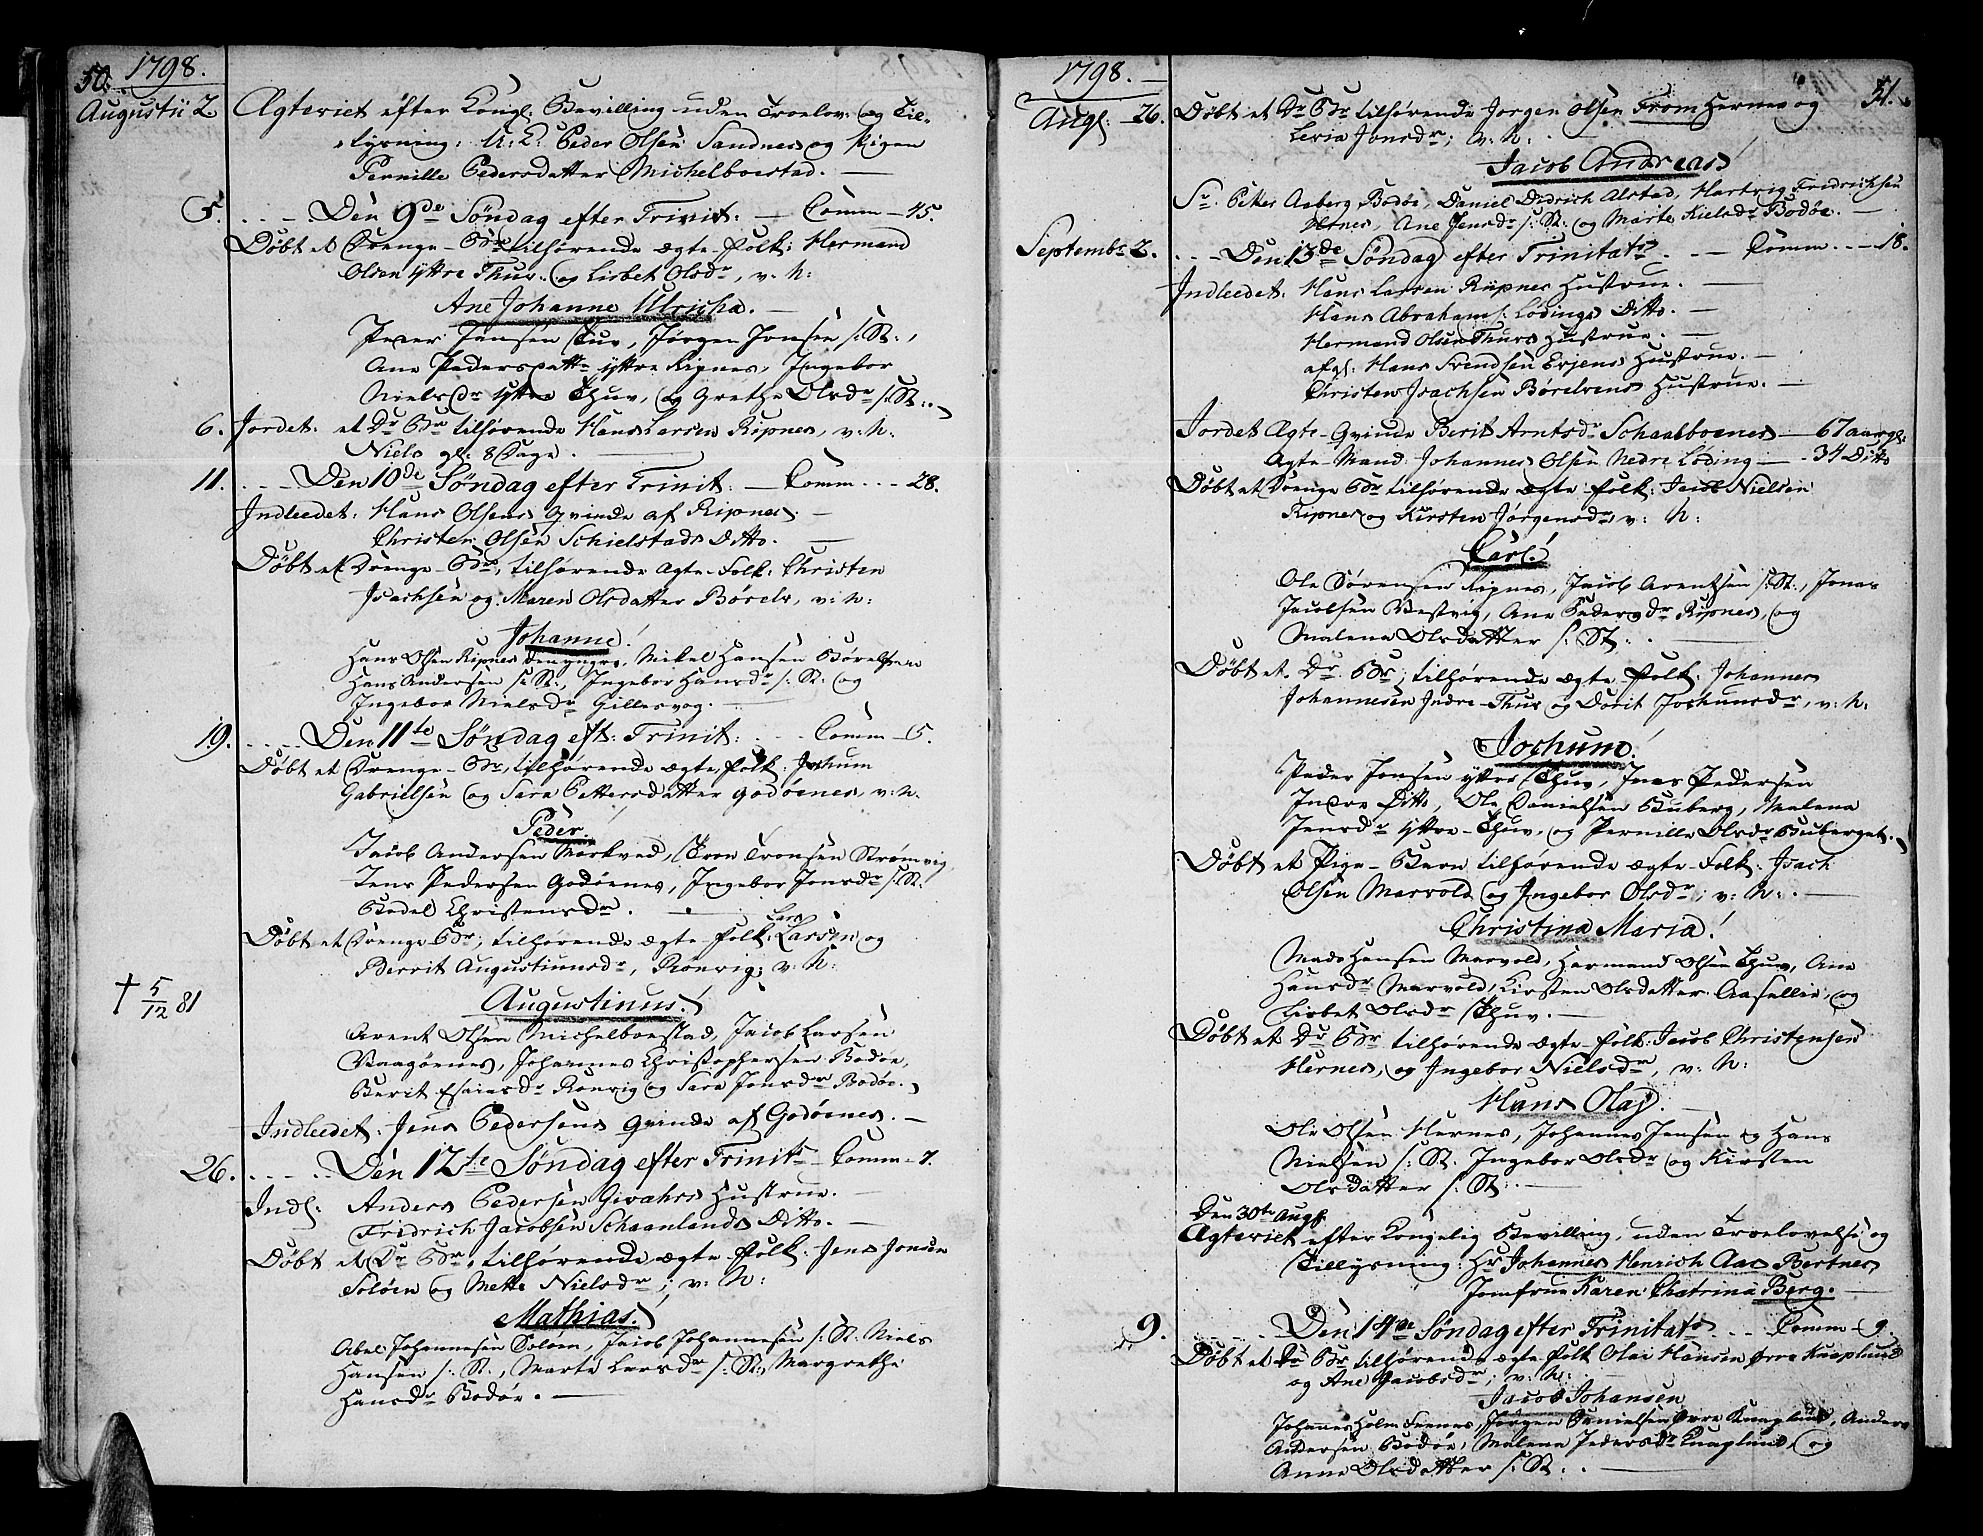 50. 1798.
Augustii 2. Ægteviet efter Kongl: Bevilling uden Troelov: og Til-
lysning: U: K: Peder Olsen Sandnes og Pigen
Pernille Pedersdatter Michelboestad.
5. Den 9de Søndag efter Trinit: Comm - 45.
Døbt et Drenge-Bn tilhørende ægte-Folk: Hermand
Olsen yttre Thuv: og Lisbet Olsdr, v: N:
Ane Johanne Ulricha.
Peder Jensen Tuv, Jørgen Jonsen s: St:,
Ane Pedersdattr yttre Ripnes, Ingebor
Nielsdr yttre Thuv, og Grethe Olsdr s: St:
6. Jordet: et Dr Bn tilhørende Hans Larsen Ripnes, v: N:
Niels gl: 8 Dage.
11. Den 10de Søndag efter Trinit: Comm - 28.
Indleedet: Hans Olsens Qvinde af Ripnes.
Christen Olsen Schielstads Ditto.
Døbt et Drenge-Bn, tilhørende ægte-Folk: Christen
Isachsen og Maren Olsdatter Børels, v: N:
Johanne!
Hans Olsen Ripnes den yngre, Mikel Hansen
Hans Andersen s: St:, Ingebor Hansdr s: St: og
Ingebor Nielsdr Gillesvog.
19. Den 11te Søndag eft: Trinit: Comm - 5.
Døbt et Drenge-Bn, tilhørende ægte Folk: Jochum
Gabrielsen og Sara Pettersdatter Godøenes, v: N.
Peder.
Jacob Andersen Morkved, Tron Tronsen Strømvig
Jens Pedersen Godøenes, Ingebor Jonsdr s: St.
Bodel Christensdr.
Døbt et Drenge Bn; tilhørende ægte-Folk: Lars Larsen og
Berrit Augustinusdr, Rønvig; v: N:
† 5/12 81
Augustinus!
Arent Olsen Michelboestad, Jacob Larsen
Vaagønes, Johannes Christophersen Bodøe,
Berit Esaiasdr Rønvig og Sara Jonsdr Bodøe.
Indleedet: Jens Pedersens Qvinde af Godøenes.
26. Den 12te Søndag efter Trinits Comm - 7.
Indl: Anders Pedersen Givahrs Hustrue.
Fridrich Jacobsen Schaanlands Ditto.
Døbt et Dr Bn, tilhørende ægte-Folk: Jens Jonsen
Soløen og Mette Nielsdr; v: N:
Mathias!
Abel Johannesen Soløen, Jacob Johannesen s: St. Niels
Hansen s: St:, Marte Larsdr s: St:, Margrethe
Hansdr Bodøe.
1798. 51.
Augl: 26. Døbt et Dr Bn tilhørende Jørgen Olsen From Hernes og
Jonsdr; v: N:
Jacob Andreas!
Sr Petter Aaberg Bodøe, Daniel Didrich Alstad, Hartvig Fridrichsen
Hernes, Ane Jensdr s: St: og Marte Nielsdr Bodøe.
Septembr 2. Den 13de Søndag efter Trinitats Comm - 18.
Indleedet: Hans Larsen Ripnes Hustrue.
Hans Abrahams: Lødings Ditto.
Hermand Olsen Thuvs Hustrue.
afgl: Hans Svendsen Hustrue.
Christen Isachsen Hustrue.
Jordet Ægte-Qvinde Berit Arntsdr Schaalboenes - 67 aargl:
Ægte-Mand: Johannes Olsen Nedre Løding - 34 Ditto
Døbt et Drenge Bn tilhørende ægte-Folk: Jacob Nielsen
Ripnes og Kirsten Jørgensdr, v: N:
Carl!
Ole Sørensen Ripnes, Jacob Arentsen s: St:, Jonas
Jacobsen Vestvig, Ane Pedersdr Ripnes, og
Malena Olsdatter s: St:
Døbt et Dr Bn; tilhørende ægte-Folk: Johannes
Johannesen Indre-Thuv og Dorit Jochumsdr, v: N:
Jochum!
Peder Jensen yttre Thuv, Jens Pedersen
Indre Ditto, Ole Danielsen Buberg, Malena
Jensdr yttre-Thuv og Pernille Olsdr Buberget.
Døbt et Pige-Barn tilhørende ægte-Folk: Isach
Olsen Marvold og Ingebor Olsdr; v: N:
Christina Maria!
Mads Hansen Marvold, Hermand Olsen Thuv, Ane
Hansdr Marvold, Kirsten Olsdatter og
Lisbet Olsdr Thuv.
Døbt et Dr Bn tilhørende ægte-Folk: Jacob Christensen
Hernes, og Ingebor Nielsdr, v: N:
Hans Olaj.
Ole Olsen Hernes, Johannes Jensen og Hans
Nielsen s: St. Ingebor Olsdr og Kirsten
Olsdatter s: St:
Den 30te Augl:
Ægteviet efter Kongelig Bevilling, uden Troelovelse og
Tillysning: Hr Johannes Henrich Aas Bertnes
Jomfrue Karen Chatrina Berg.
9. Den 14de Søndag efter Trinitats Comm - 9.
Døbt et Dr Bn tilhørende ægte Folk Olai Hansen øvre Knaplund
og Ane Jacobsdr; v: N:
Jacob Johansen
Johannes Holm Jørgen Danielsen øvre Knaplund, Anders
Andersen Bodøe, Malena Pedersdr Knaplund, og
Anne Olsdatter s: St: